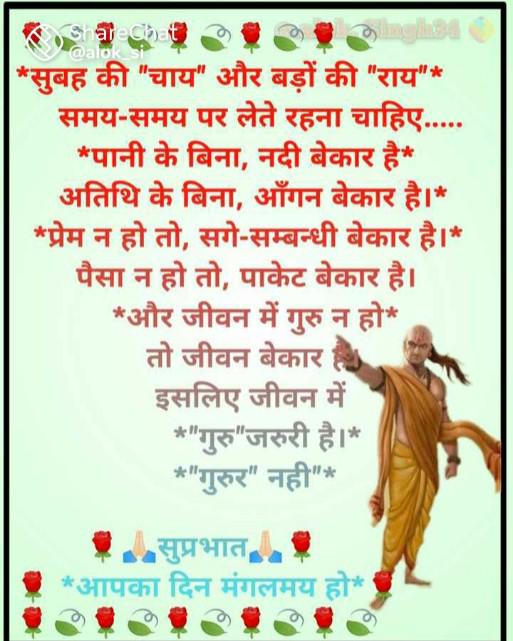 ShareChat
@alok_si
*सुबह की "चाय" और बड़ों की "राय"*
समय-समय पर लेते रहना चाहिए.....
*पानी के बिना, नदी बेकार है*
अतिथि के बिना, आँगन बेकार है।*
*प्रेम न हो तो, सगे-सम्बन्धी बेकार है।*
पैसा न हो तो, पाकेट बेकार है।
*और जीवन में गुरु न हो*
तो जीवन बेकार है।
इसलिए जीवन में
*"गुरु"जरुरी है।*
*"गुरुर" नही"*
सुप्रभात
*आपका दिन मंगलमय हो*